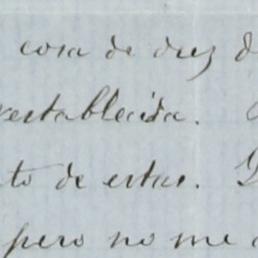 cosa de diez d
restablecida.
to de estas.
pero no me